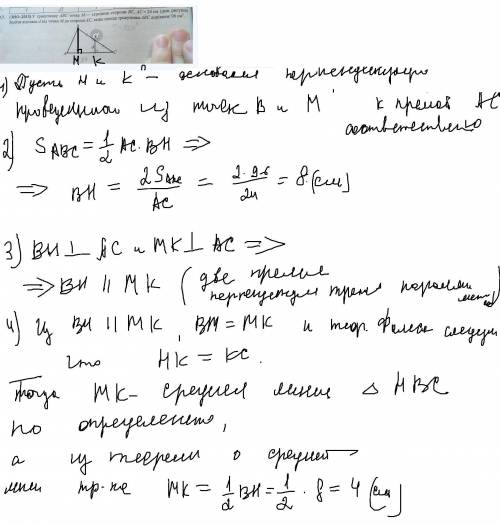 (ИЗО-2015) У трикутнику ABC точка M — середина сторони BC, AC = 24 см (див. рисунок)
Знайти відстань від точки M до сторони AC, якщо площа трикутника ABC дорівнює 96 см²
M K
1) Пусть H и K - основания перпендикуляров
проведенной из точек B и M к прямой AC
соответственно
2) S_ABC = 1/2 AC · BH =>
=> BH = 2S_ABC / AC = 2·96 / 24 = 8 (см)
3) BH ⊥ AC и MK ⊥ AC =>
=> BH || MK (две прямые
перпендикулярн третей параллельны)
4) Из BH || MK, BM = MK и теор. Фалеса следует
что HK = KC.
Тогда MK - средняя линия △ HBC
по определению,
а из теоремы о средней
линии тр-ка MK = 1/2 BH = 1/2 · 8 = 4 (см)